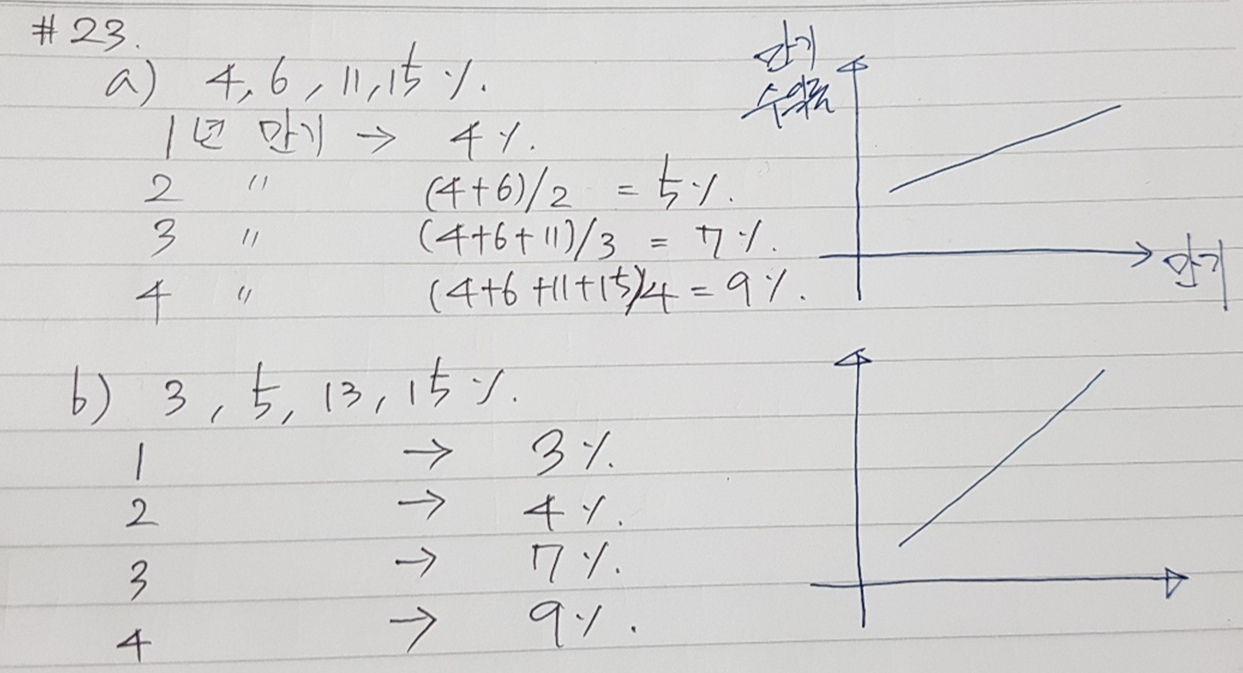 #23.
a) 4, 6, 11, 15 %.
1년 만기 → 4%.
2 〃 (4+6)/2 = 5%.
3 〃 (4+6+11)/3 = 7%.
4 〃 (4+6+11+15)/4 = 9%.
만기
수익률
만기
b) 3, 5, 13, 15 %.
1 → 3%.
2 → 4%.
3 → 7%.
4 → 9%.